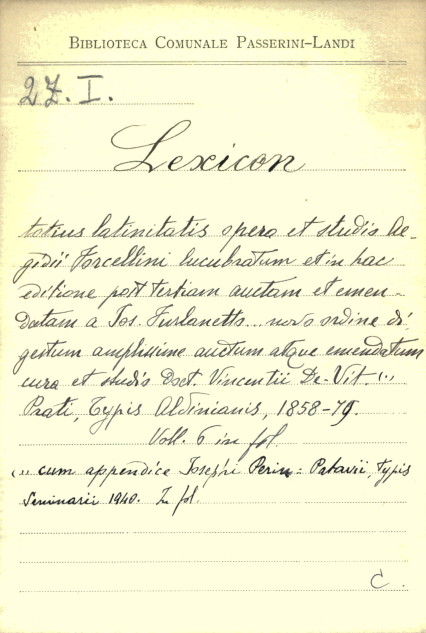 BIBLIOTECA COMUNALE PASSERINI-LANDI
2Z. I.
Lexicon
totius latinitatis opera et studio Ae-
gidii Forcellini lucubratum et in hac
editione post tertiam auctam et emen-
datam a Jos. Furlanetto... novo ordine di
gestum amplissime auctum atque emendatum
cura et studio Doct. Vincentii De-Vit.
Prati, Typis Aldinianis, 1858-79.
Voll. 6 in fol.
cum appendice Josephi Perin = Patavii, typis
Seminarii 1940. 2 fol.
C.